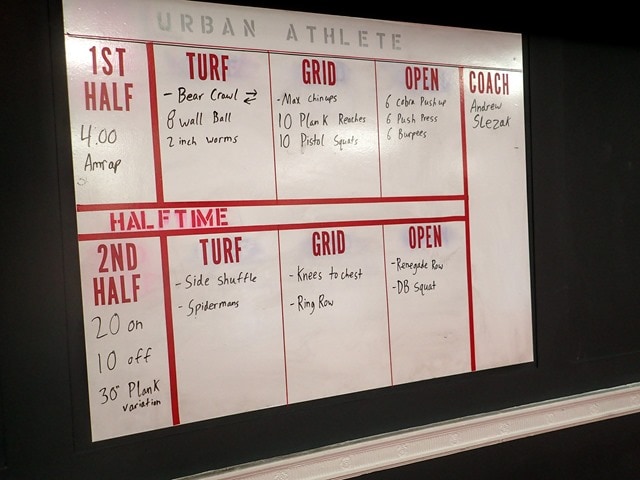 URBAN ATHLETE
1ST HALF
4:00
Amrap
TURF
- Bear Crawl ⇄
8 Wall Ball
2 inch worms
GRID
-Max chinups
10 Plank Reaches
10 Pistol Squats
OPEN
6 Cobra Push up
6 Push Press
6 Burpees
COACH
Andrew
Slezak
HALFTIME
2ND HALF
20 on
10 off
30" Plank
variation
TURF
- Side shuffle
- Spidermans
GRID
- Knees to chest
- Ring Row
OPEN
-Renegade Row
-DB Squat